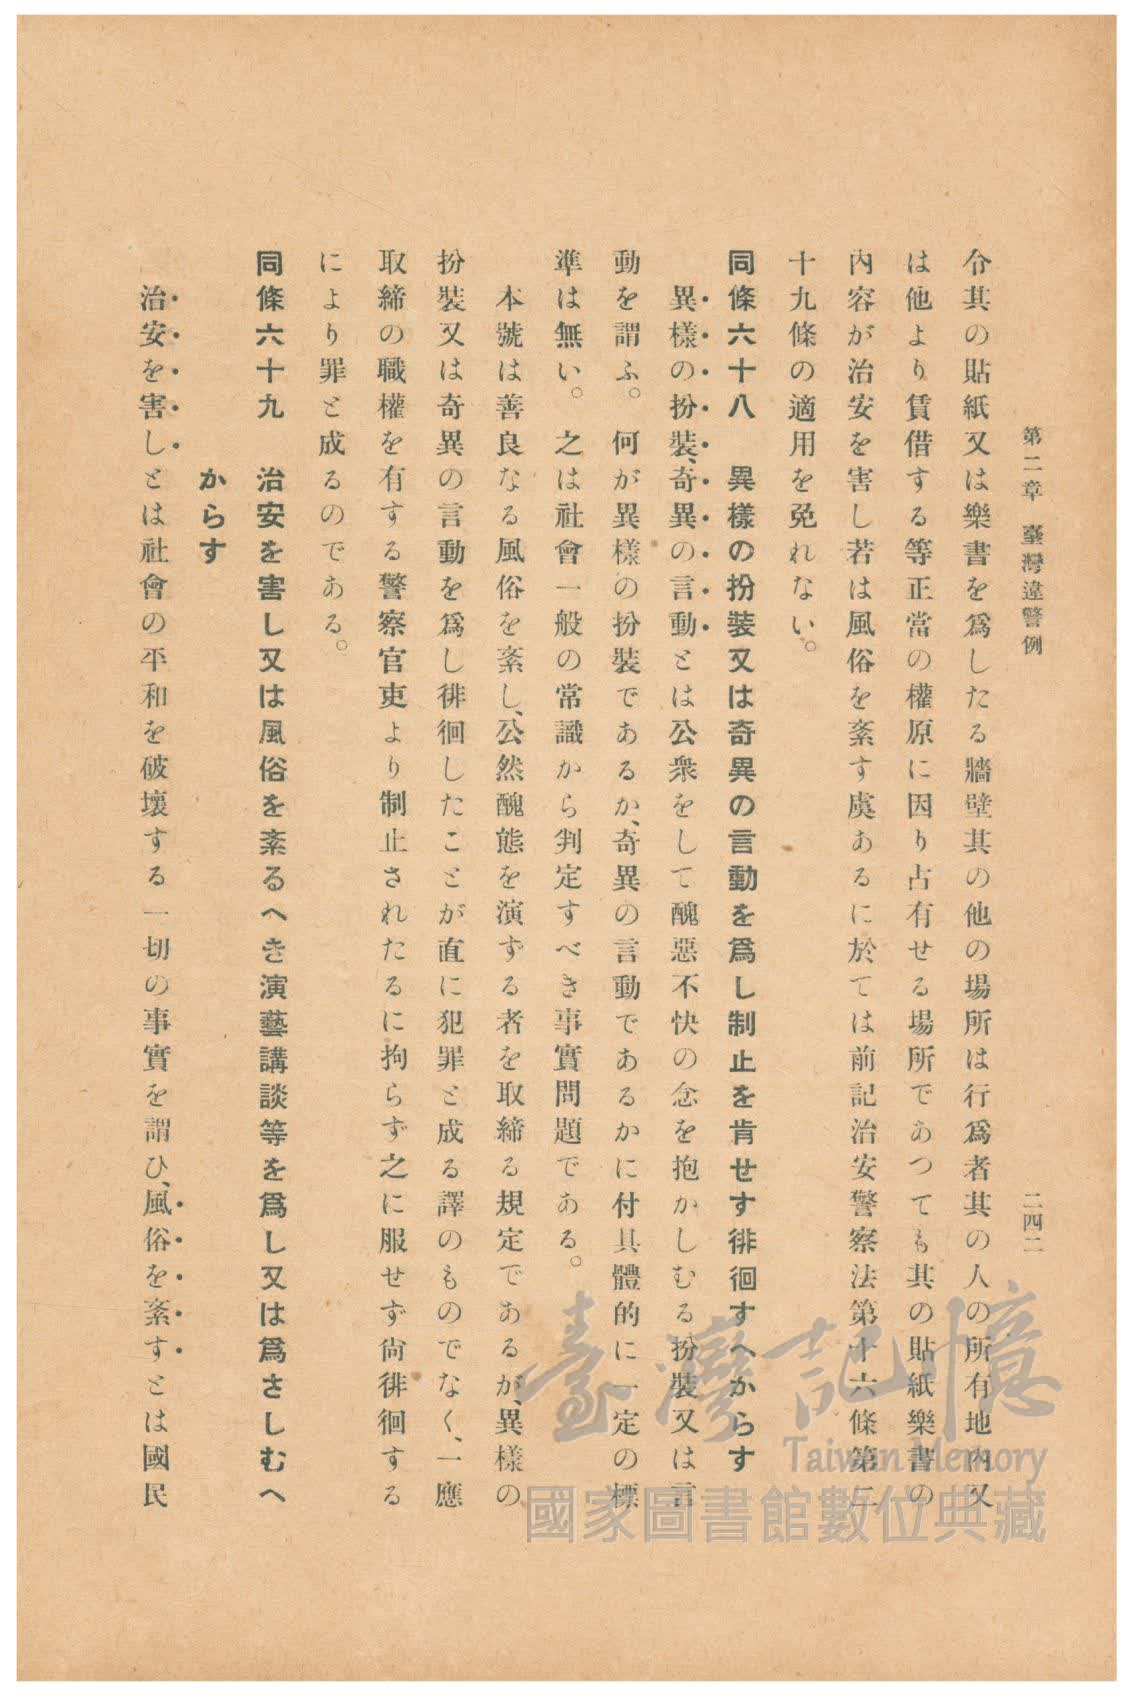 第二章　臺灣違警例
二四二
令其の貼紙又は樂書を爲したる牆壁其の他の場所は行爲者其の人の所有地內又
は他より賃借する等正當の權原に因り占有せる場所であつても其の貼紙樂書の
內容が治安を害し若は風俗を紊す虞あるに於ては前記治安警察法第十六條第二
十九條の適用を免れない。
同條六十八　異樣の扮裝又は奇異の言動を爲し制止を肯せす徘徊すへからす
異樣の扮裝、奇異の言動とは公衆をして醜惡不快の念を抱かしむる扮裝又は言
動を謂ふ。何が異樣の扮裝であるか、奇異の言動であるかに付具體的に一定の標
準は無い。之は社會一般の常識から判定すべき事實問題である。
本號は善良なる風俗を紊し、公然醜態を演ずる者を取締る規定であるが、異樣の
扮裝又は奇異の言動を爲し徘徊したことが直に犯罪と成る譯のものでなく、一應
取締の職權を有する警察官吏より制止されたるに拘らず之に服せず尙徘徊する
により罪と成るのである。
同條六十九　治安を害し又は風俗を紊るへき演藝講談等を爲し又は爲さしむへ
からす
治安を害しとは社會の平和を破壞する一切の事實を謂ひ、風俗を紊すとは國民
臺灣記憶
Taiwan Memory
國家圖書館數位典藏